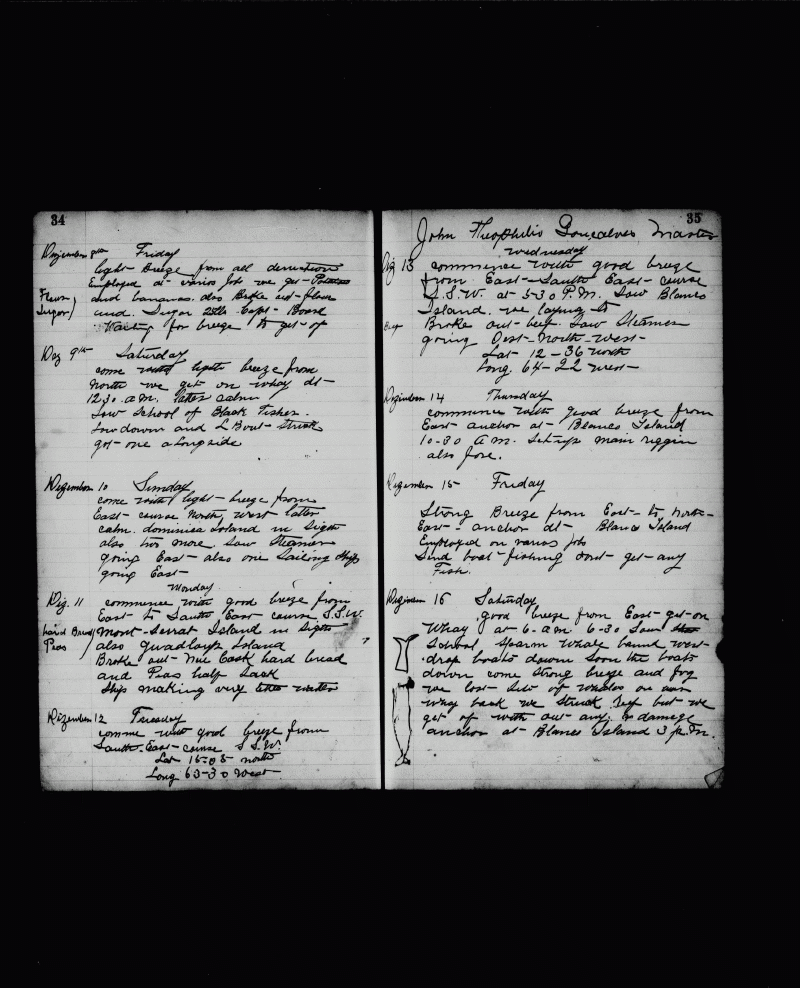 34
Dezember 8th Friday
light Breeze from all derections
Employed at varios Job we get Potatoes
Flour and bananas. also Broke out flour
Sugar and Sugar Capt. Board
Waiting for breeze to get of
Dez 9th Saturday
come with light breeze from
North we get on whay at
12-30 a.m. latter calm
Saw School of Black Fishes.
low down and L Boat Struck
got one alongside
Dezember 10 Sunday
come with light breeze from
East course North, west later
calm. dominica island in Sigth
also two more Saw Steamer
going East also one Sailing Ship
going East
Monday
Dez. 11 commence with good breeze from
East to South East course S.S.W.
hard Bread Mont-Serrat Island in Sigth
Peas also Guadloup Island
Broke out Nue Cask hard bread
and Peas half Sack
Ship making very water
Dezember 12 Tuesday
comme with good breeze from
South-East course S.S.W.
Lat 15-05 north
Long 63-30 West
35
John Theophilo Goncalves Master
Wednesday
Dez 13 commence with good breeze
from East South East course
S.S.W. at 5-30 P.M. Saw Blanco
Island. we laying to
Beef Broke out beef Saw Steamer
going Oest-North-West
Lat 12-36 north
Long. 64-22 west
Dezember 14 Thursday
commence with good breeze from
East anchor at Blanco Island
10-30 A.M. Setup main riggin
also fore.
Dezember 15 Friday
Strong Breeze from East to North-
East anchor at Blanco Island
Employed on varios Job
Send boat fishing dont get any
Fish.
Dezember 16 Saturday
good breeze from East get on
Whay at 6-a.m. 6-30 Saw
School Sparm Whale bound west
drop boats down Soon the boats
down come Strong breeze and fog
we lost Site of whales on our
way back we Struck Reef but we
get of with out any damage
anchor at Blanco Island 3 p.m.